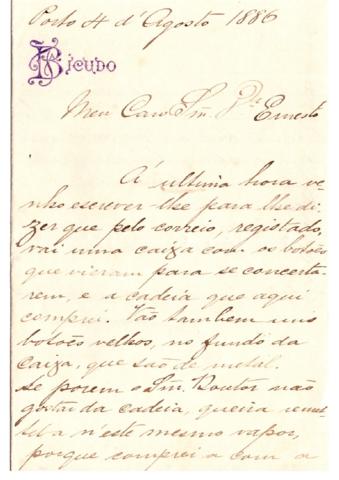 Porto 4 d'Agosto 1886
Bicudo
Meu Caro Snr. Dr. Ernesto
Á ultima hora ve-
nho escrever-lhe para lhe di-
zer que pelo correio, registado,
vai uma caixa com os botões
que vieram para se concerta-
rem, e a cadeia que aqui
comprei. Vão tambem uns
botões velhos, no fundo da
caixa, que são de metal.
Se porem o Snr. Doutor não
gostar da cadeia, queira remet-
tel-a n'este mesmo vapor,
porque comprei-a com a